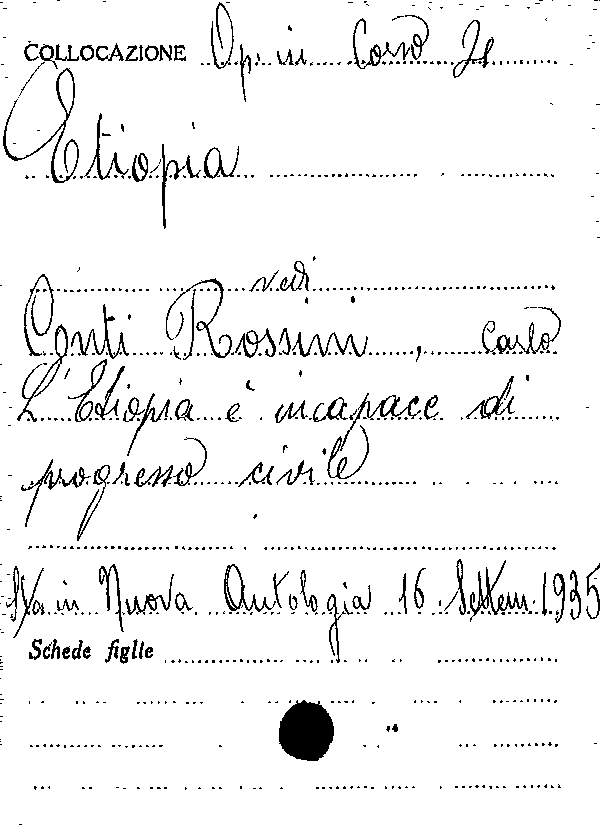 COLLOCAZIONE Op. in Corso
Etiopia
vedi
Conti Rossini, Carlo
L'Etiopia è incapace di
progresso civile
in Nuova Antologia 16 Settem. 1935
Schede figlie